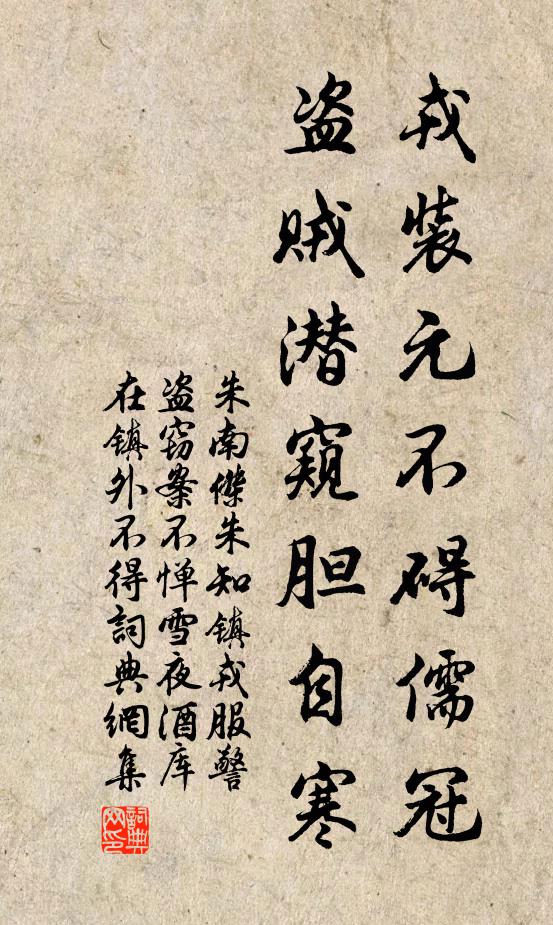 戎装元不碍儒冠
盗贼潜窥胆自寒
朱南傑朱知镇戎服警
盗窃案不惮雪夜酒库
在镇外不得詞典網集
詞典
网印